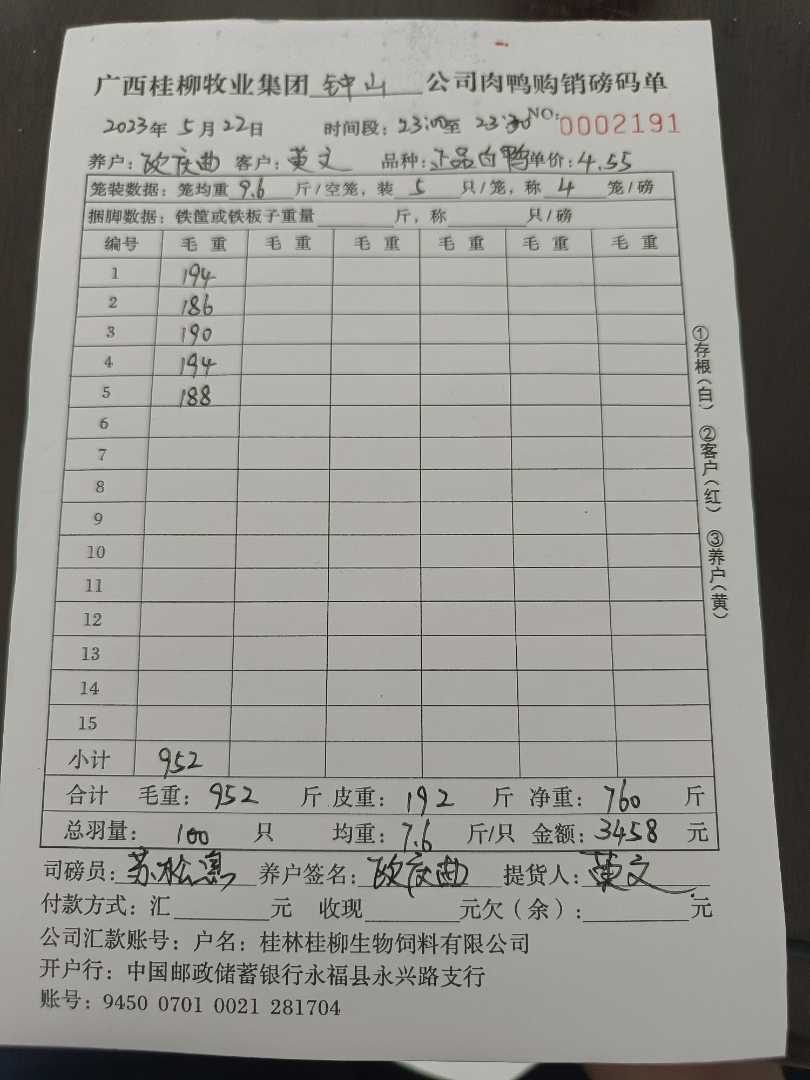 广西桂柳牧业集团 钟山 公司肉鸭购销磅码单
2023年 5月 22日 时间段：23:00至 23:30 NO: 0002191
养户：欧庆曲 客户：黄文 品种：正品白鸭 单价：4.55
笼装数据：笼均重 9.6 斤/空笼，装 5 只/笼，称 4 笼/磅
捆脚数据：铁筐或铁板子重量 斤，称 只/磅
编号 毛 重 毛 重 毛 重 毛 重 毛 重 毛 重
1 194
2 186
3 190
4 194
5 188
6
7
8
9
10
11
12
13
14
15
小计 952
合计 毛重：952 斤 皮重：192 斤 净重：760 斤
总羽量：100 只 均重：7.6 斤/只 金额：3458 元
司磅员：苏松 养户签名：欧庆曲 提货人：黄文
付款方式：汇 元 收现 元欠（余）: 元
公司汇款账号：户名：桂林桂柳生物饲料有限公司
开户行：中国邮政储蓄银行永福县永兴路支行
账号：9450 0701 0021 281704
①存根（白） ②客户（红） ③养户（黄）